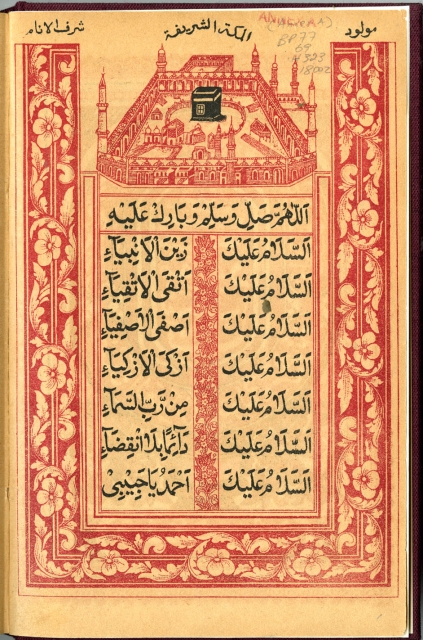 مولود المكة الشريفة شرف الانام
BP77
69
18002
اَللّٰهُمَّ صَلِّ وَسَلِّمْ وَبَارِكْ عَلَيْهِ
اَلسَّلَامُ عَلَيْكَ زَيْنَ الْاَنْبِيَاءِ
اَلسَّلَامُ عَلَيْكَ اَتْقَى الْاَتْقِيَاءِ
اَلسَّلَامُ عَلَيْكَ اَصْفَى الْاَصْفِيَاءِ
اَلسَّلَامُ عَلَيْكَ اَزْكَى الْاَزْكِيَاءِ
اَلسَّلَامُ عَلَيْكَ مِنْ رَّبِّ السَّمَاءِ
اَلسَّلَامُ عَلَيْكَ دَائِمًا بِلَا انْقِضَاءِ
اَلسَّلَامُ عَلَيْكَ اَحْمَدُ يَا حَبِيْبِيْ